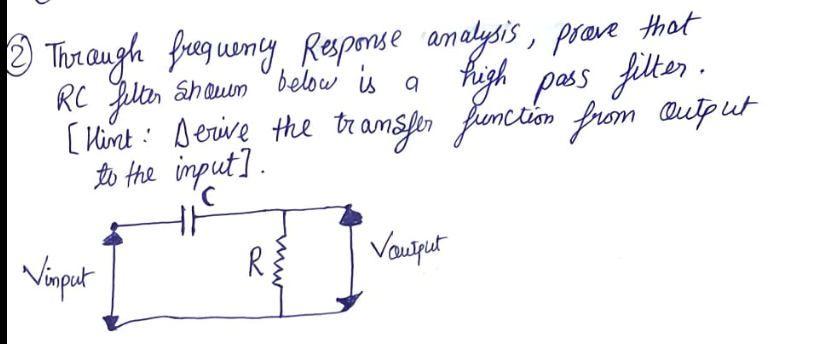 ② Through frequency Response analysis, prove that
RC filter shown below is a high pass filter.
[Hint : Derive the transfer function from output
to the input].
C
R
Vinput
Voutput